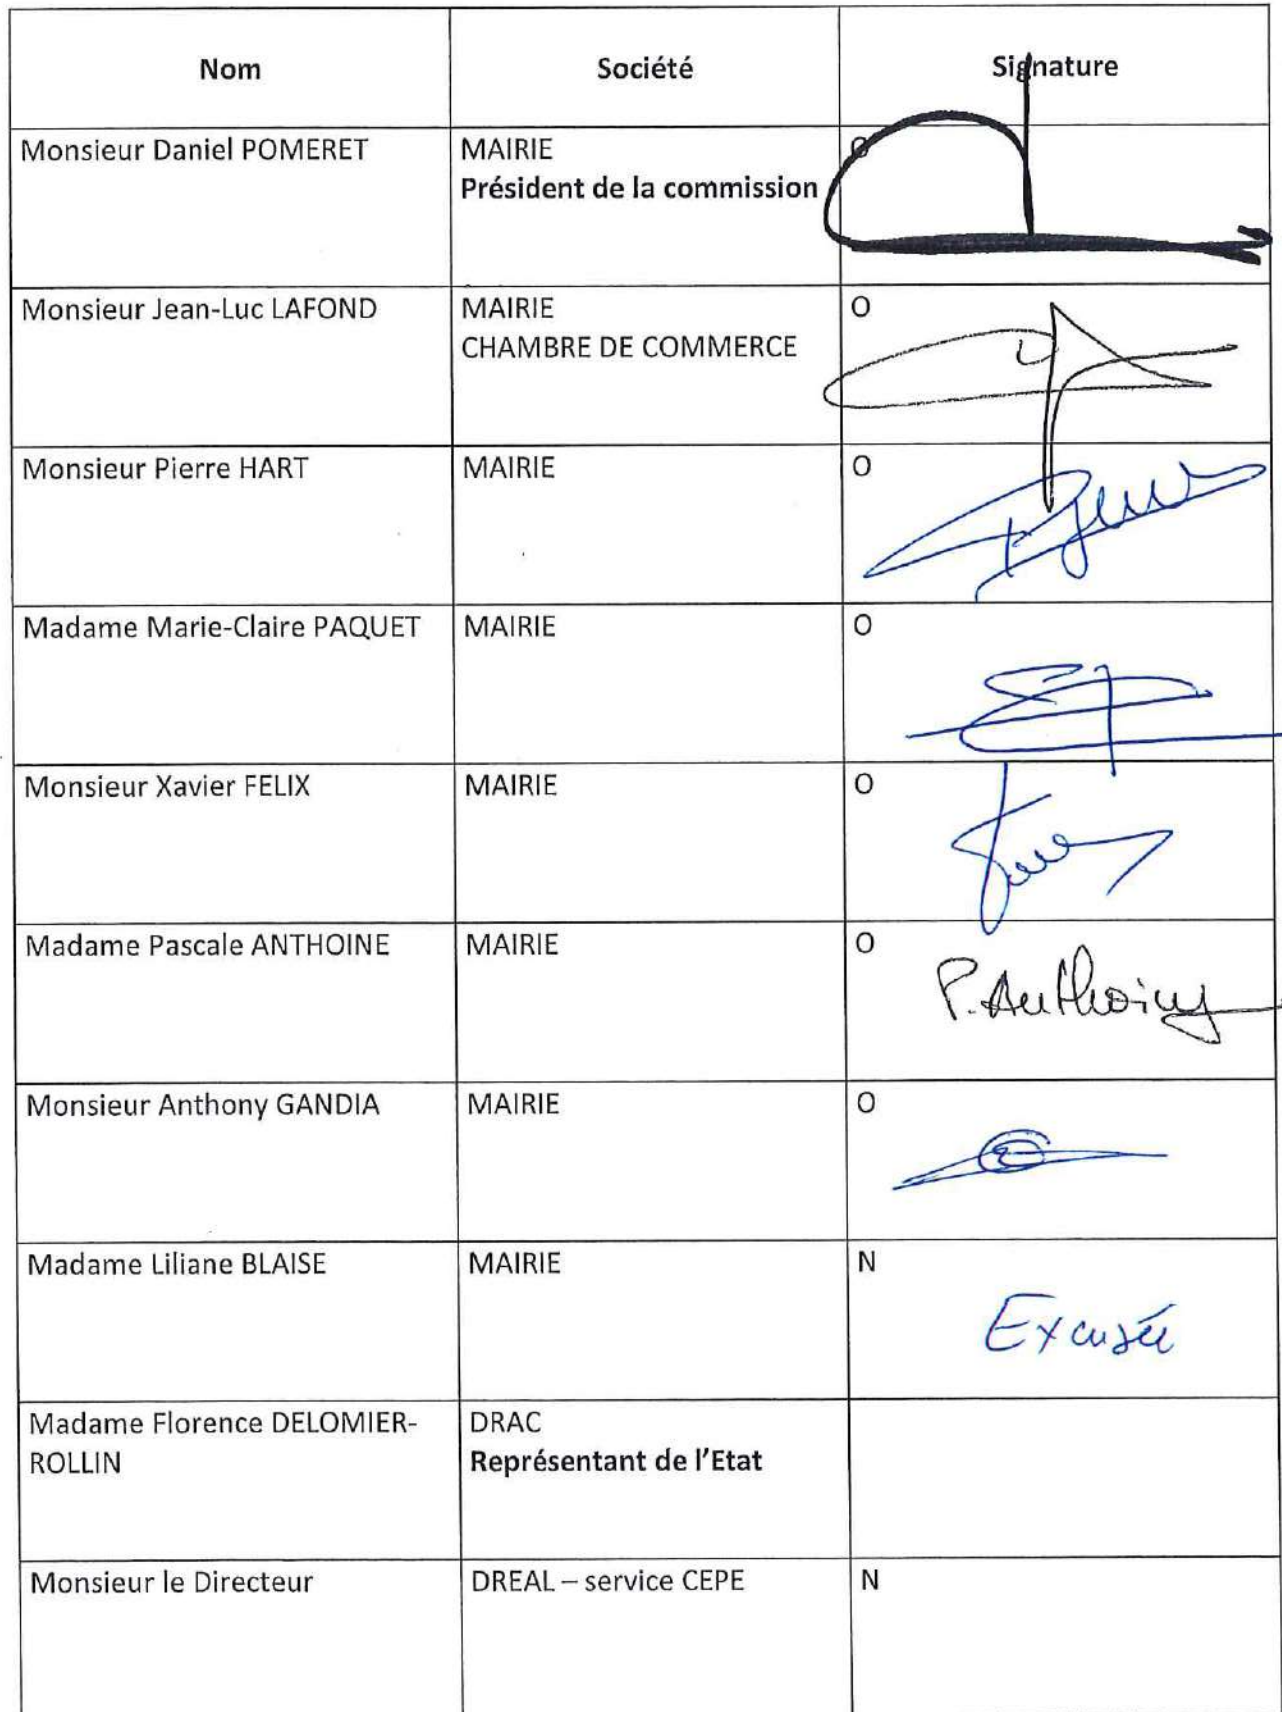 Nom Société Signature
Monsieur Daniel POMERET MAIRIE O
Président de la commission
Monsieur Jean-Luc LAFOND MAIRIE O
CHAMBRE DE COMMERCE
Monsieur Pierre HART MAIRIE O
Madame Marie-Claire PAQUET MAIRIE O
Monsieur Xavier FELIX MAIRIE O
Madame Pascale ANTHOINE MAIRIE O
P. Anthoine
Monsieur Anthony GANDIA MAIRIE O
Madame Liliane BLAISE MAIRIE N
Excusée
Madame Florence DELOMIER- DRAC
ROLLIN Représentant de l'Etat
Monsieur le Directeur DREAL – service CEPE N